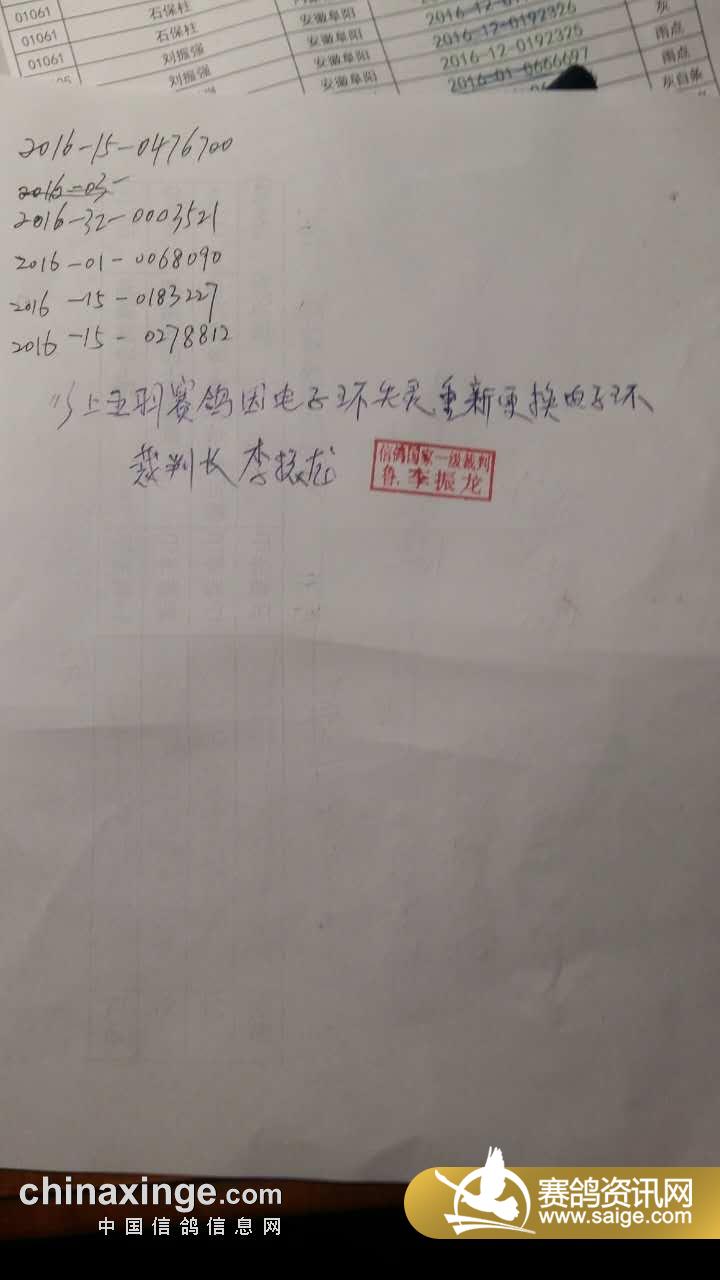 01061
石保柱
01061
石保柱
安徽阜阳
2016-12-0192326
灰
01061
刘振强
安徽阜阳
2016-12-0192325
雨点
刘振强
安徽阜阳
2016-01-0666697
雨点
安徽阜阳
灰白条
2016-15-0476700
2016-03-
2016-32-0003521
2016-01-0068090
2016-15-0183227
2016-15-0278812
以上五羽赛鸽因电子环失灵重新更换电子环
裁判长 李振龙
信鸽国家一级裁判
鲁. 李振龙
chinaxinge.com
中国信鸽信息网
赛鸽资讯网
www.saige.com